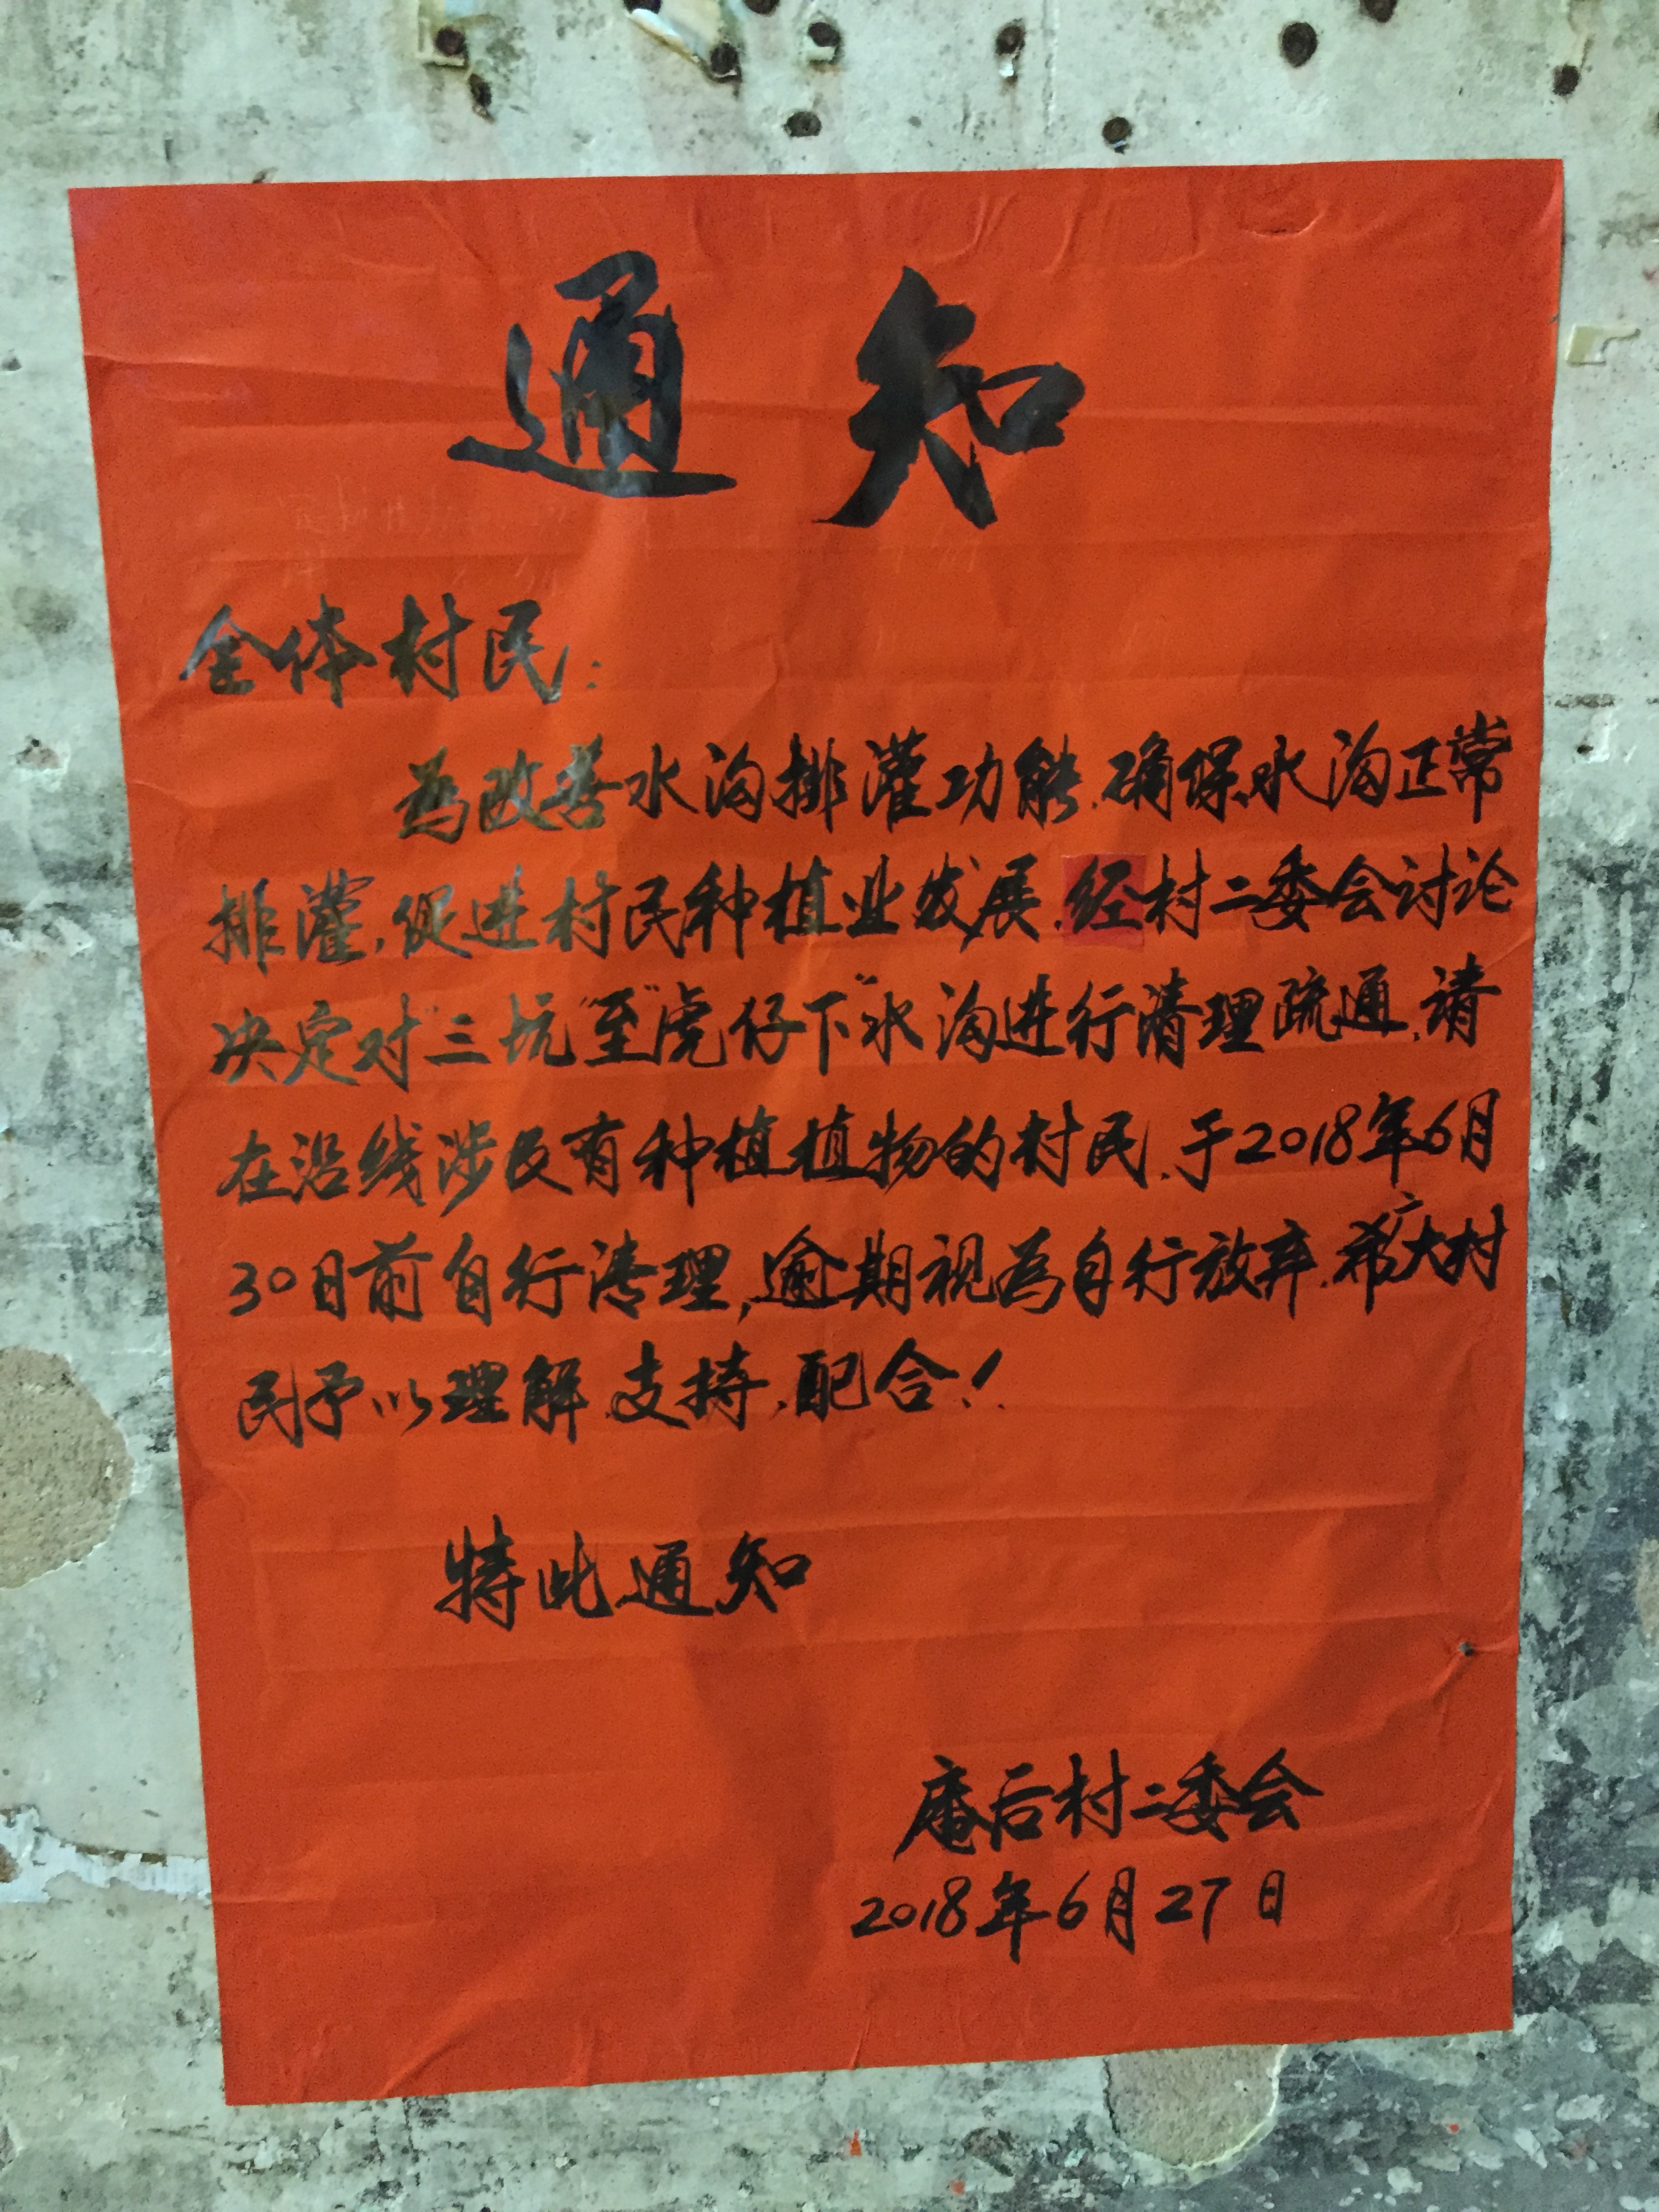 通知
全体村民：
为改善水沟排灌功能，确保水沟正常
排灌，促进村民种植业发展，经村二委会讨论
决定对“三坑”至“虎仔下”水沟进行清理疏通，请
在沿线涉及有种植植物的村民，于2018年6月
30日前自行清理，逾期视为自行放弃，希广大村
民予以理解、支持、配合！
特此通知
庵后村二委会
2018年6月27日